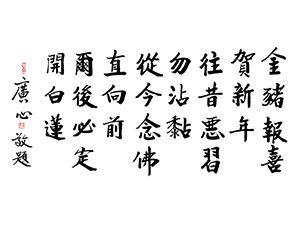 金豬報喜
賀新年
往昔惡習
勿沾黏
從今念佛
直向前
爾後必定
開白蓮
廣心敬題